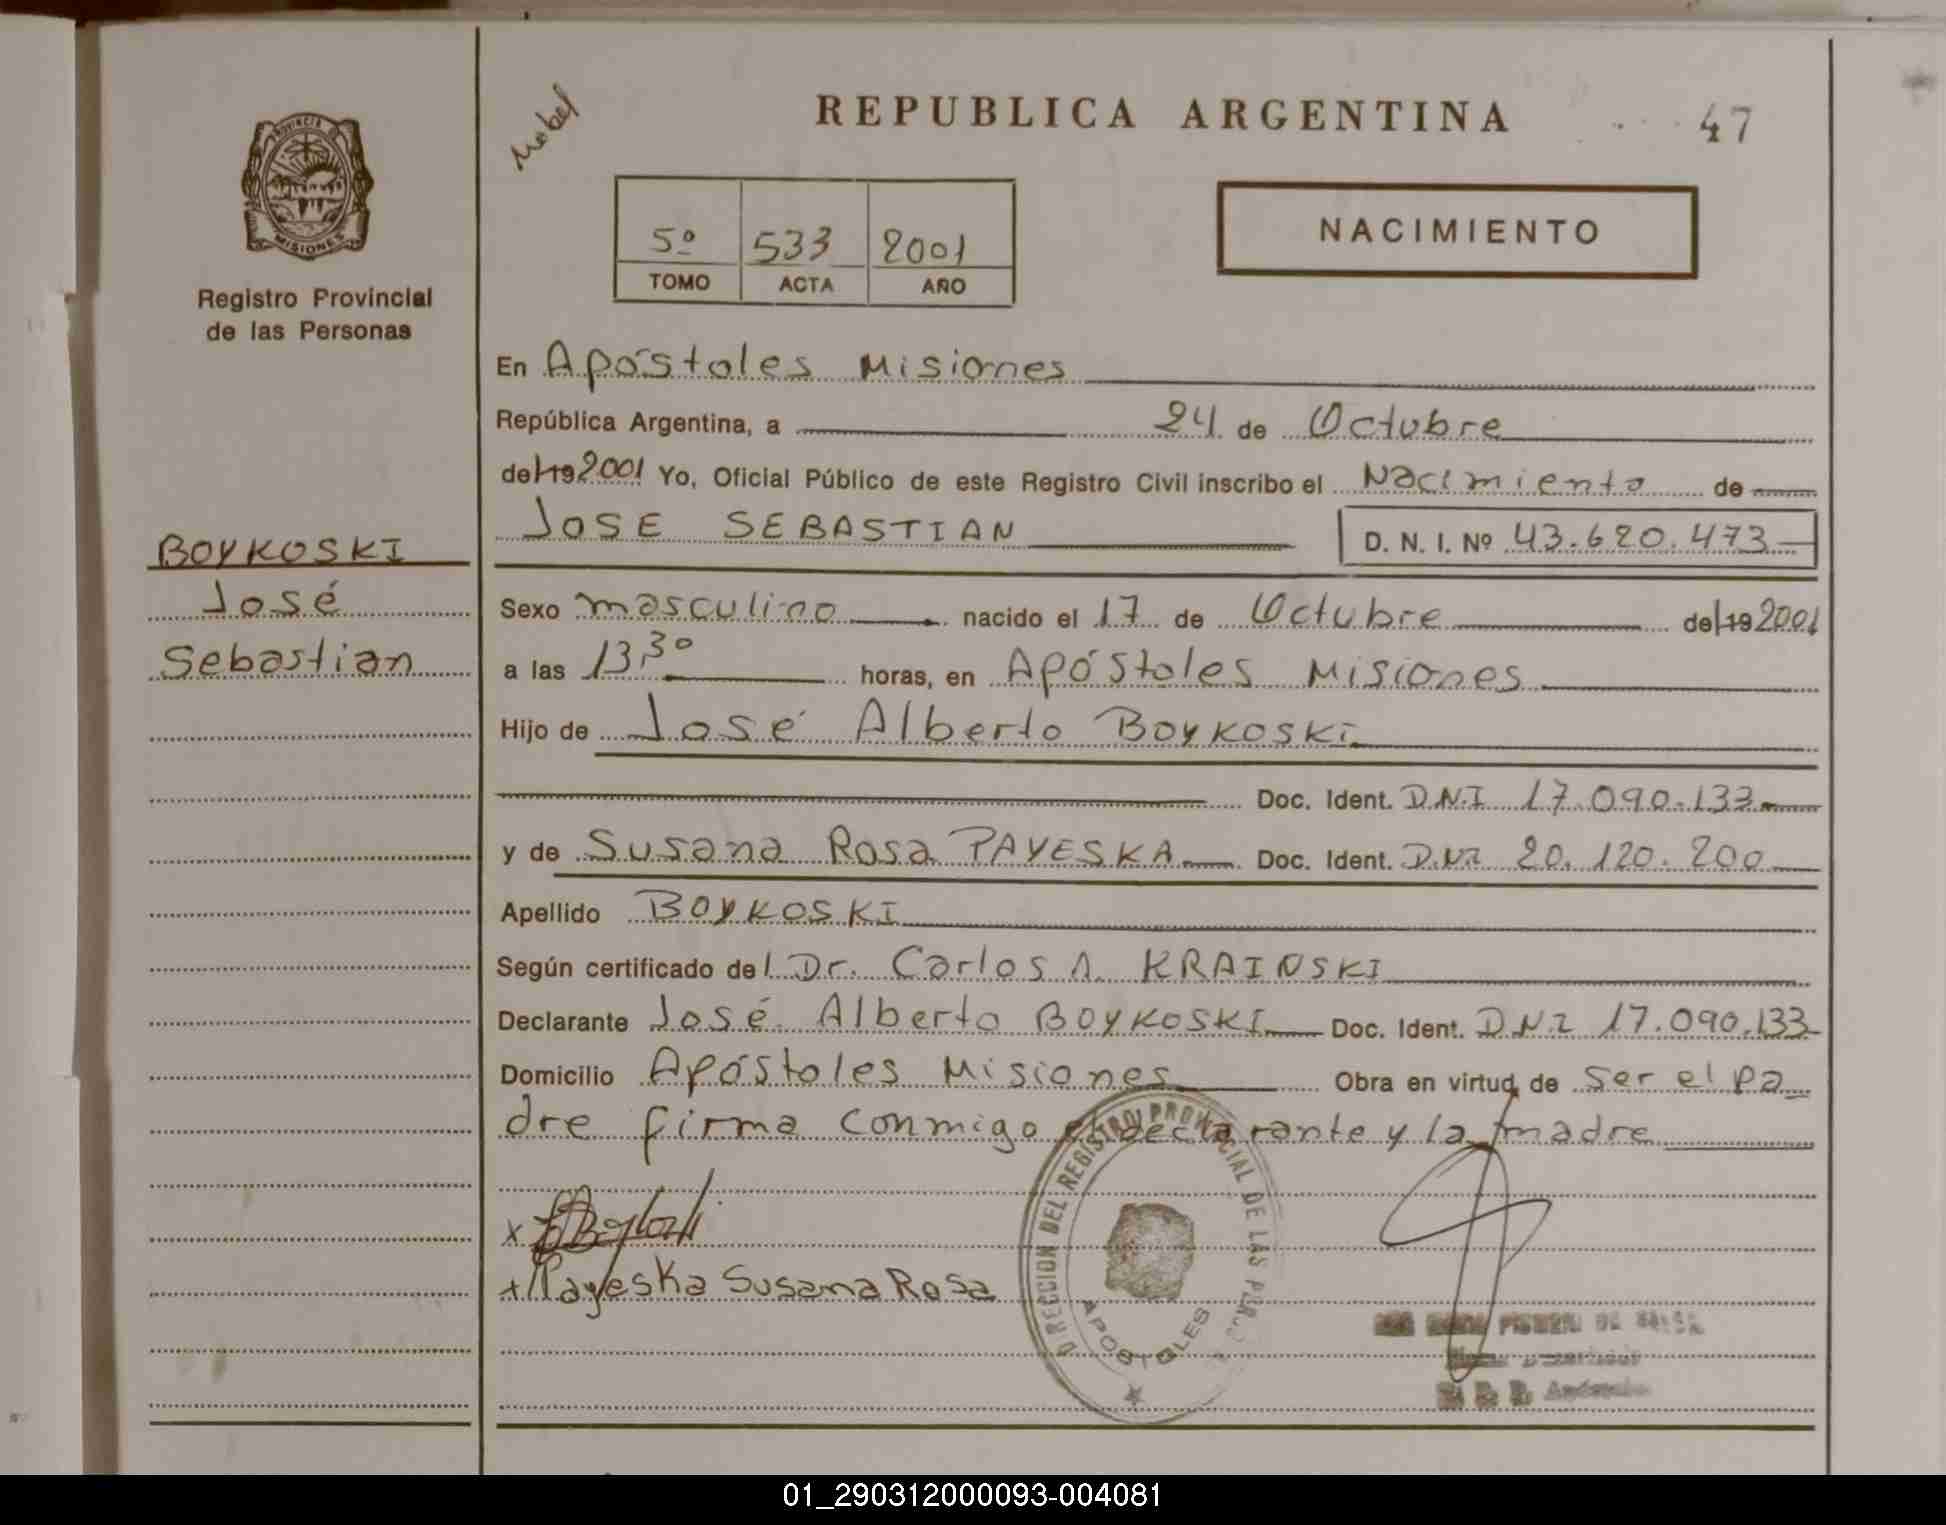 Mabel
REPUBLICA ARGENTINA
47
PROVINCIA
MISIONES
Registro Provincial
de las Personas
5º 533 2001
TOMO ACTA AÑO
NACIMIENTO
En Apóstoles Misiones
República Argentina, a 24 de Octubre
del 19 2001 Yo, Oficial Público de este Registro Civil inscribo el Nacimiento de
JOSE SEBASTIAN D. N. I. Nº 43.620.473
BOYKOSKI
José
Sebastian
Sexo masculino nacido el 17 de Octubre del 19 2001
a las 13,30 horas, en Apóstoles Misiones
Hijo de José Alberto BOYKOSKI
Doc. Ident. D.N.I 17.090.133
y de Susana Rosa PAYESKA Doc. Ident. D.NI 20.120.200
Apellido BOYKOSKI
Según certificado del Dr. Carlos A. KRAINSKI
Declarante José Alberto BOYKOSKI Doc. Ident. D.N.I 17.090.133
Domicilio Apóstoles Misiones Obra en virtud de ser el pa
dre firma conmigo el declarante y la madre
x
x Payeska Susana Rosa
DIRECCION DEL REGISTRO PROVINCIAL DE LAS PERS
APOSTOLES
01_290312000093-004081